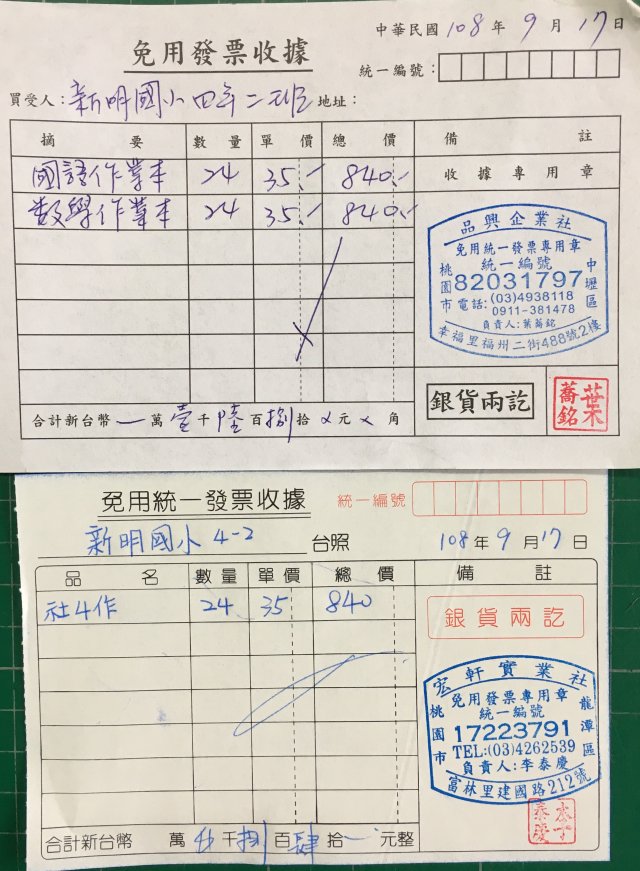 中華民國 108 年 9 月 17 日
免用發票收據
統一編號：
買受人：新明國小四年二班 地址：
摘 要 數 量 單 價 總 價 備 註
國語作業本 24 35.- 840.-
數學作業本 24 35.- 840.-
收據專用章
品興企業社
免用統一發票專用章
統一編號
桃園市
中壢區
82031797
電話：(03)4938118
0911-381478
負責人：葉蕎銘
幸福里福州二街488號2樓
合計新台幣 一 萬 壹 千 陸 百 捌 拾 x 元 x 角
銀貨兩訖
葉蕎銘
免用統一發票收據
統一編號
新明國小 4-2 台照
108 年 9 月 17 日
品 名 數 量 單 價 總 價 備 註
社4作 24 35 840
銀貨兩訖
宏軒實業社
免用發票專用章
統一編號
桃園市
龍潭區
17223791
TEL:(03)4262539
負責人：李泰慶
富林里建國路212號
合計新台幣 萬 千 捌 百 肆 拾 元整